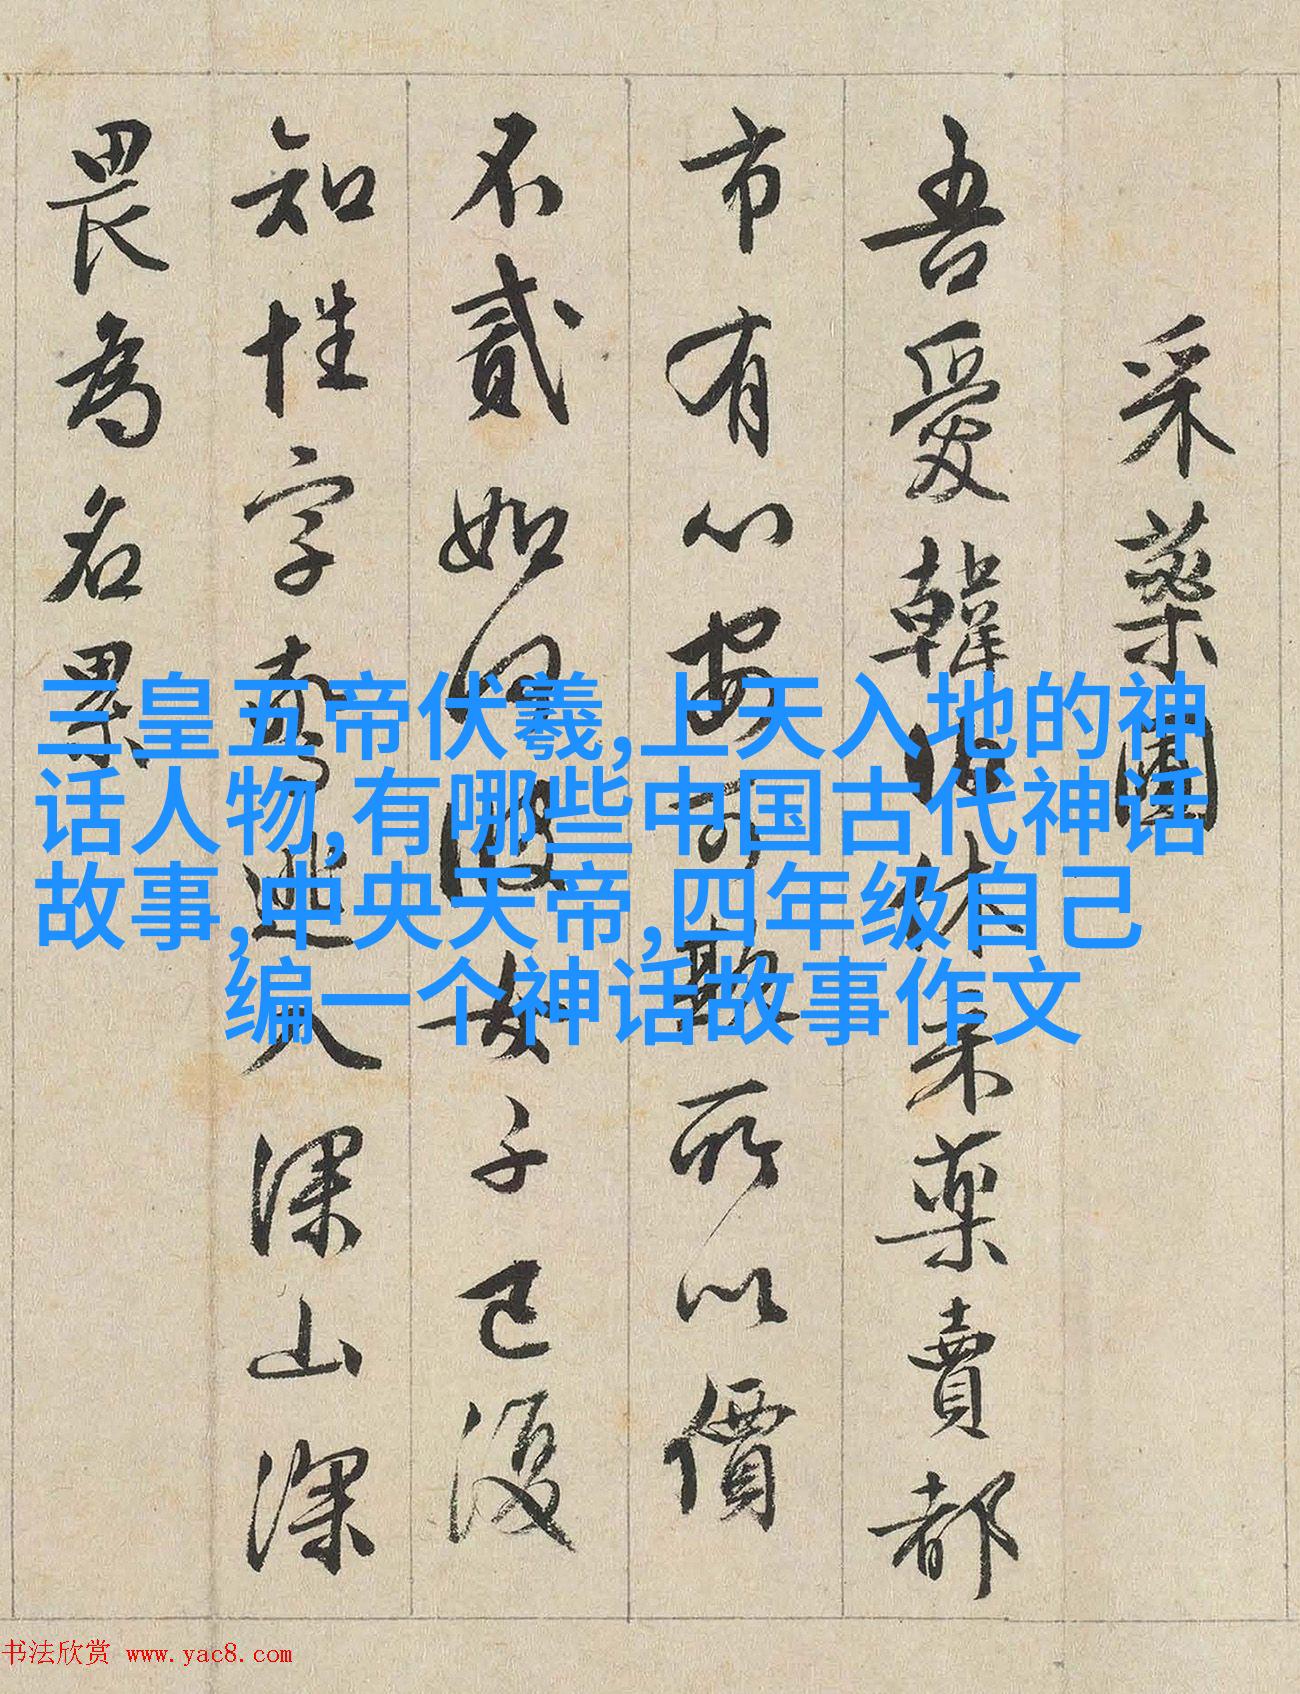 采藥圃
吾愛韓伯休采藥賣都
市有心安可欺所以價
不貳如何彼女子已復
知姓字驚逃入深山深
畏為名累
三皇五帝伏羲,上天入地的神
话人物,有哪些中国古代神话
故事,中央天帝,四年级自己
编一个神话故事作文
书法欣赏 www.yac8.com